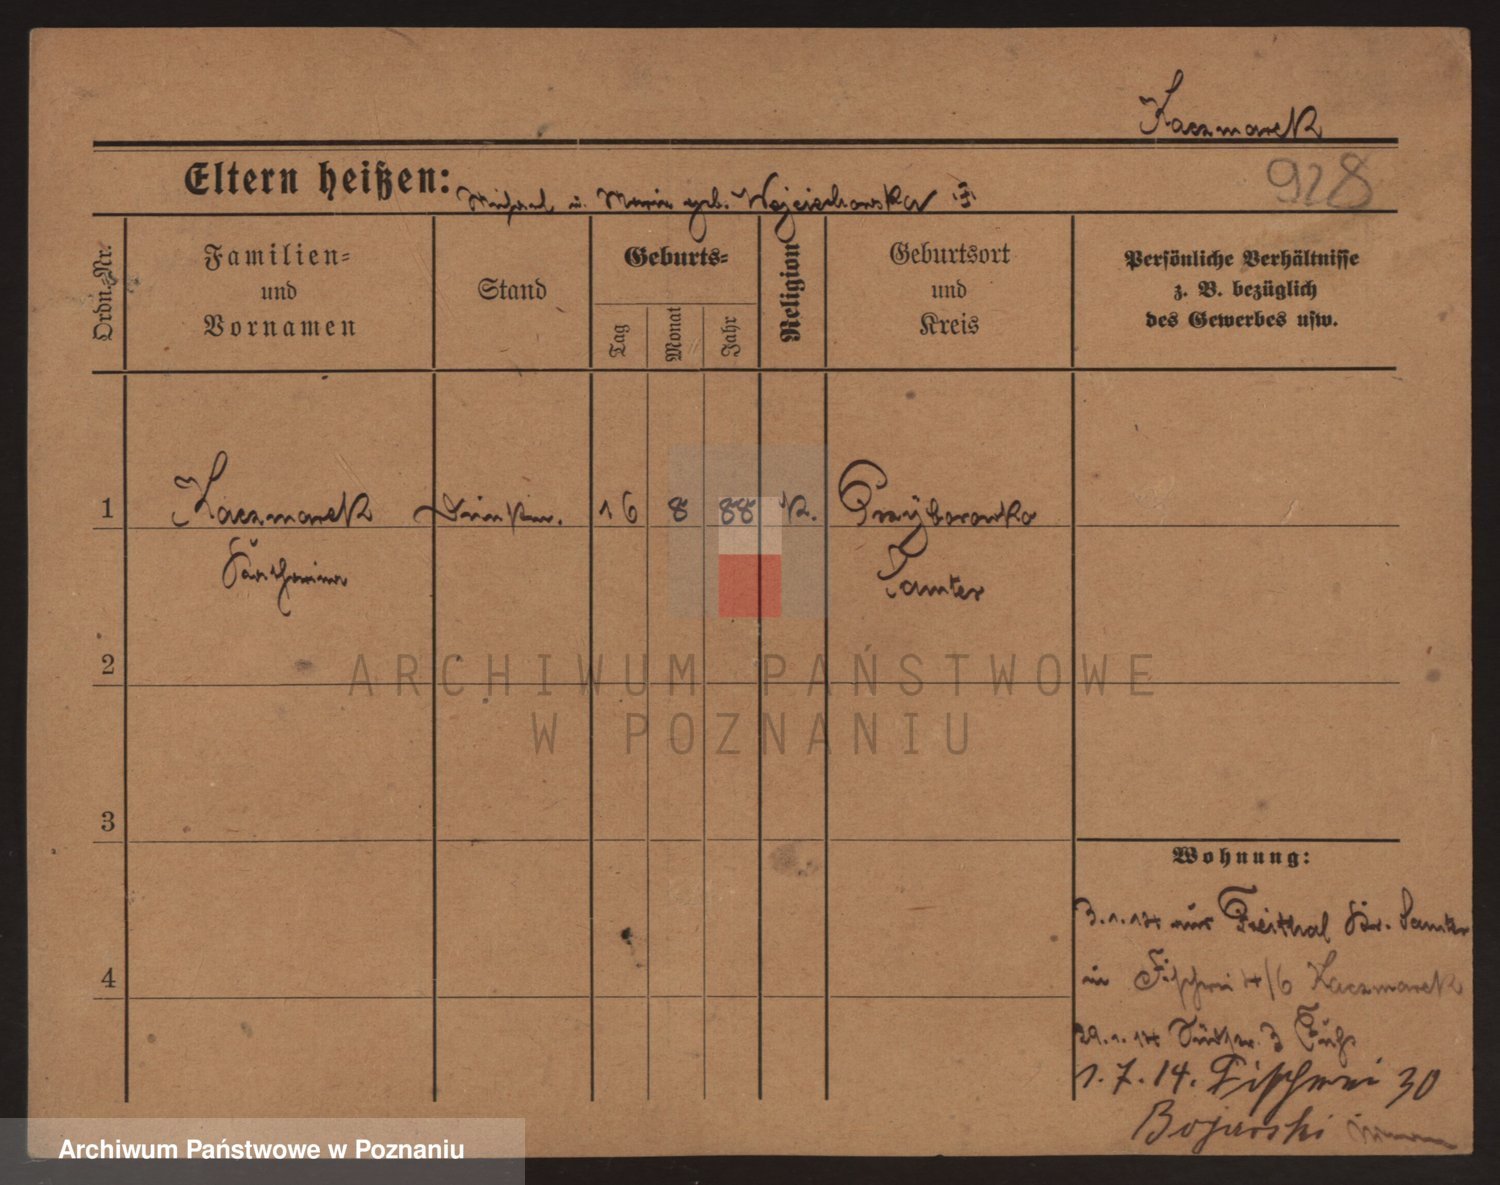 Kaczmarek
928
Eltern heißen: Michael u. Maria geb. Wojciechowska
Ordn.-Nr.
Familien-
und
Vornamen
Stand
Geburts-
Tag
Monat
Jahr
Religion
Geburtsort
und
Kreis
Persönliche Verhältnisse
z. B. bezüglich
des Gewerbes usw.
1 Kaczmarek 16 8 88 K. Przyborowko
Samter
2
ARCHIWUM PAŃSTWOWE
W POZNANIU
3
4
Wohnung:
3.1.14 aus Kr. Samter
in Fischerei 4/6 Kaczmarek
29.1.14 3
1.7.14. Fischerei 30
Bojarski
Archiwum Państwowe w Poznaniu